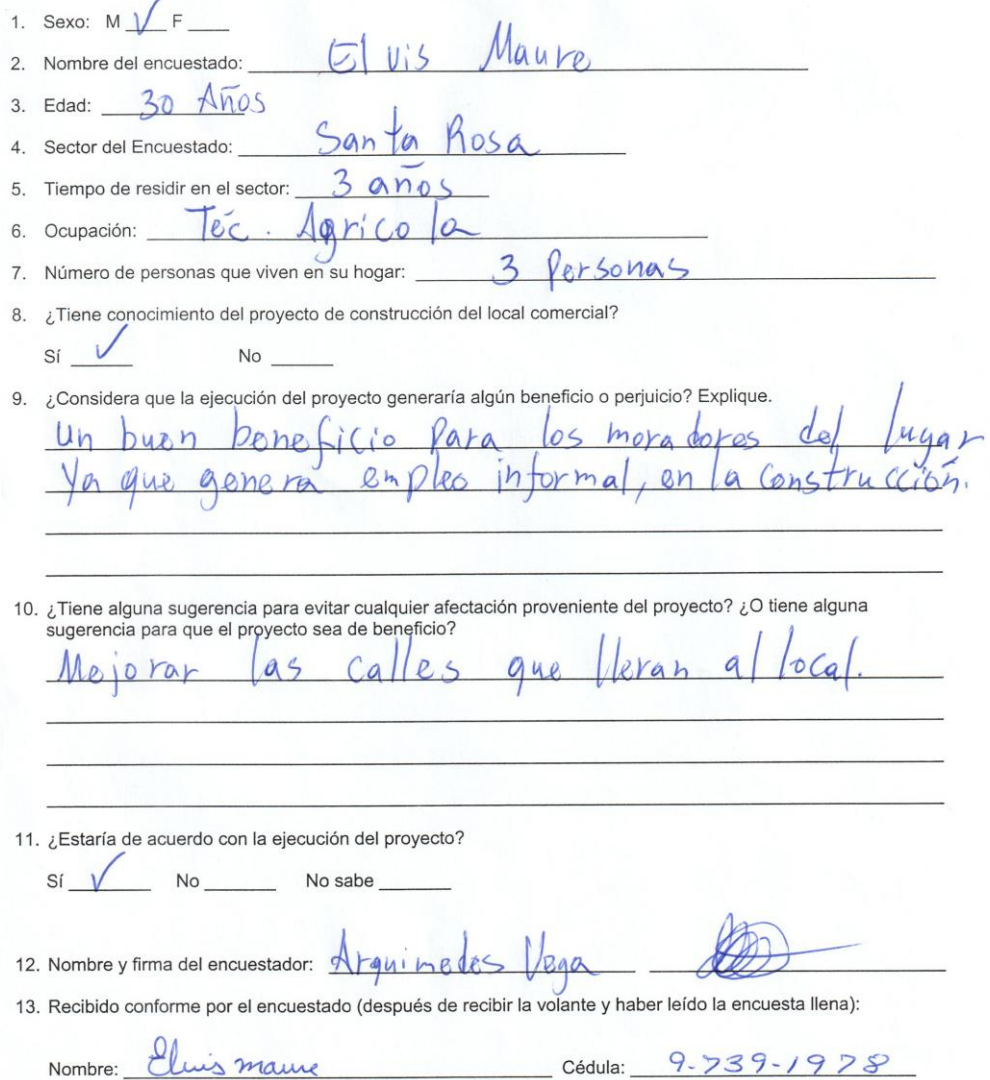 1. Sexo: M √ F ____
2. Nombre del encuestado: Elvis Maure
3. Edad: 30 Años
4. Sector del Encuestado: Santa Rosa
5. Tiempo de residir en el sector: 3 años
6. Ocupación: Téc. Agricola
7. Número de personas que viven en su hogar: 3 Personas
8. ¿Tiene conocimiento del proyecto de construcción del local comercial?
Sí √ No ____
9. ¿Considera que la ejecución del proyecto generaría algún beneficio o perjuicio? Explique.
Un buen beneficio Para los moradores del lugar
Ya que genera empleo informal, en la Construcción.
10. ¿Tiene alguna sugerencia para evitar cualquier afectación proveniente del proyecto? ¿O tiene alguna
sugerencia para que el proyecto sea de beneficio?
Mejorar las calles que lleran al local.
11. ¿Estaría de acuerdo con la ejecución del proyecto?
Sí √ No ____ No sabe ____
12. Nombre y firma del encuestador: Arquimedes Vega
13. Recibido conforme por el encuestado (después de recibir la volante y haber leído la encuesta llena):
Nombre: Elvis maure Cédula: 9-739-1978